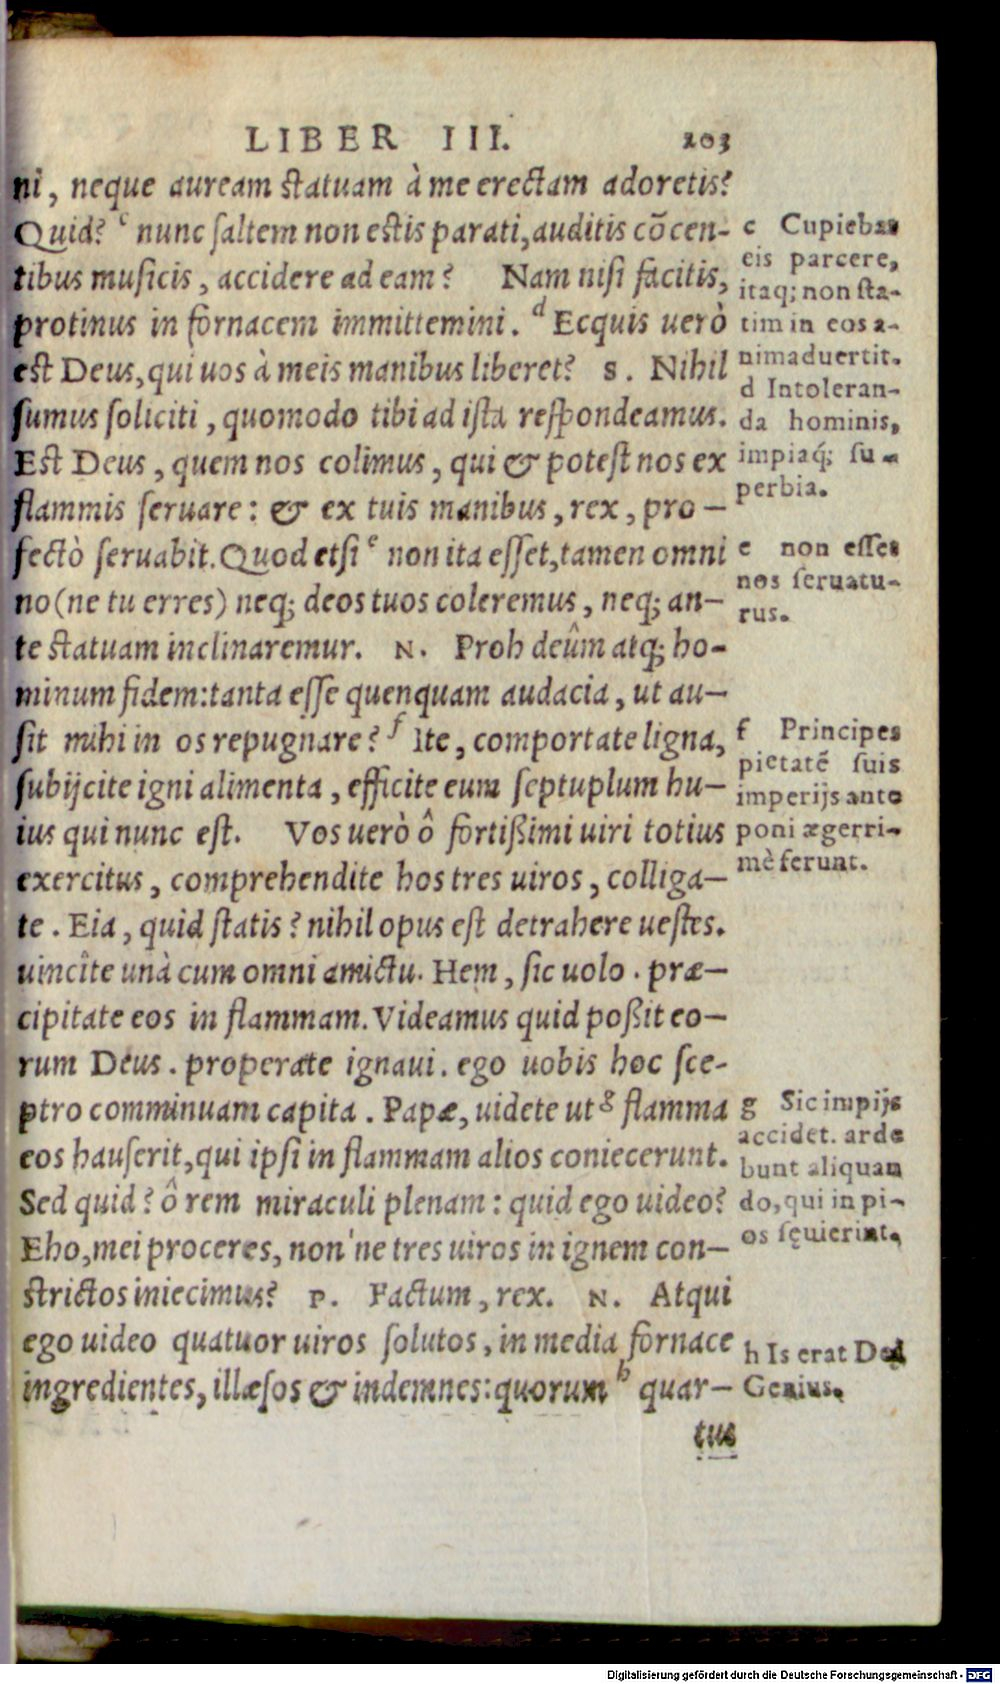 LIBER III. 203
ni, neque auream statuam à me erectam adoretis?
Quid? ᶜ nunc saltem non estis parati, auditis cōcen-
tibus musicis, accidere ad eam? Nam nisi facitis,
protinus in fornacem immittemini. ᵈ Ecquis uerò
est Deus, qui uos à meis manibus liberet? S. Nihil
sumus soliciti, quomodo tibi ad ista respondeamus.
Est Deus, quem nos colimus, qui & potest nos ex
flammis seruare: & ex tuis manibus, rex, pro-
fectò seruabit. Quod etsi ᵉ non ita esset, tamen omni
no (ne tu erres) neq; deos tuos coleremus, neq; an-
te statuam inclinaremur. N. Proh deûm atq; ho-
minum fidem: tanta esse quenquam audacia, ut au-
sit mihi in os repugnare? ᶠ Ite, comportate ligna,
subijcite igni alimenta, efficite eum septuplum hu-
ius qui nunc est. Vos uerò ô fortißimi uiri totius
exercitus, comprehendite hos tres uiros, colliga-
te. Eia, quid statis? nihil opus est detrahere uestes.
uincîte unà cum omni amictu. Hem, sic uolo. præ-
cipitate eos in flammam. Videamus quid poßit eo-
rum Deus. properate ignaui. ego uobis hoc sce-
ptro comminuam capita. Papæ, uidete ut ᵍ flamma
eos hauserit, qui ipsi in flammam alios coniecerunt.
Sed quid? ô rem miraculi plenam: quid ego uideo?
Eho, mei proceres, non'ne tres uiros in ignem con-
strictos iniecimus? P. Factum, rex. N. Atqui
ego uideo quatuor uiros solutos, in media fornace
ingredientes, illæsos & indemnes: quorum ʰ quar-
tus
c Cupiebat
eis parcere,
itaq; non sta-
tim in eos a-
nimaduertit.
d Intoleran-
da hominis,
impiaq́; su-
perbia.
e non esset
nos seruatu-
rus.
f Principes
pietatē suis
imperijs ante
poni ægerri-
mè ferunt.
g Sic impijs
accidet. arde
bunt aliquan
do, qui in pi-
os sęuierint.
h Is erat Dei
Genius.
Digitalisierung gefördert durch die Deutsche Forschungsgemeinschaft - DFG